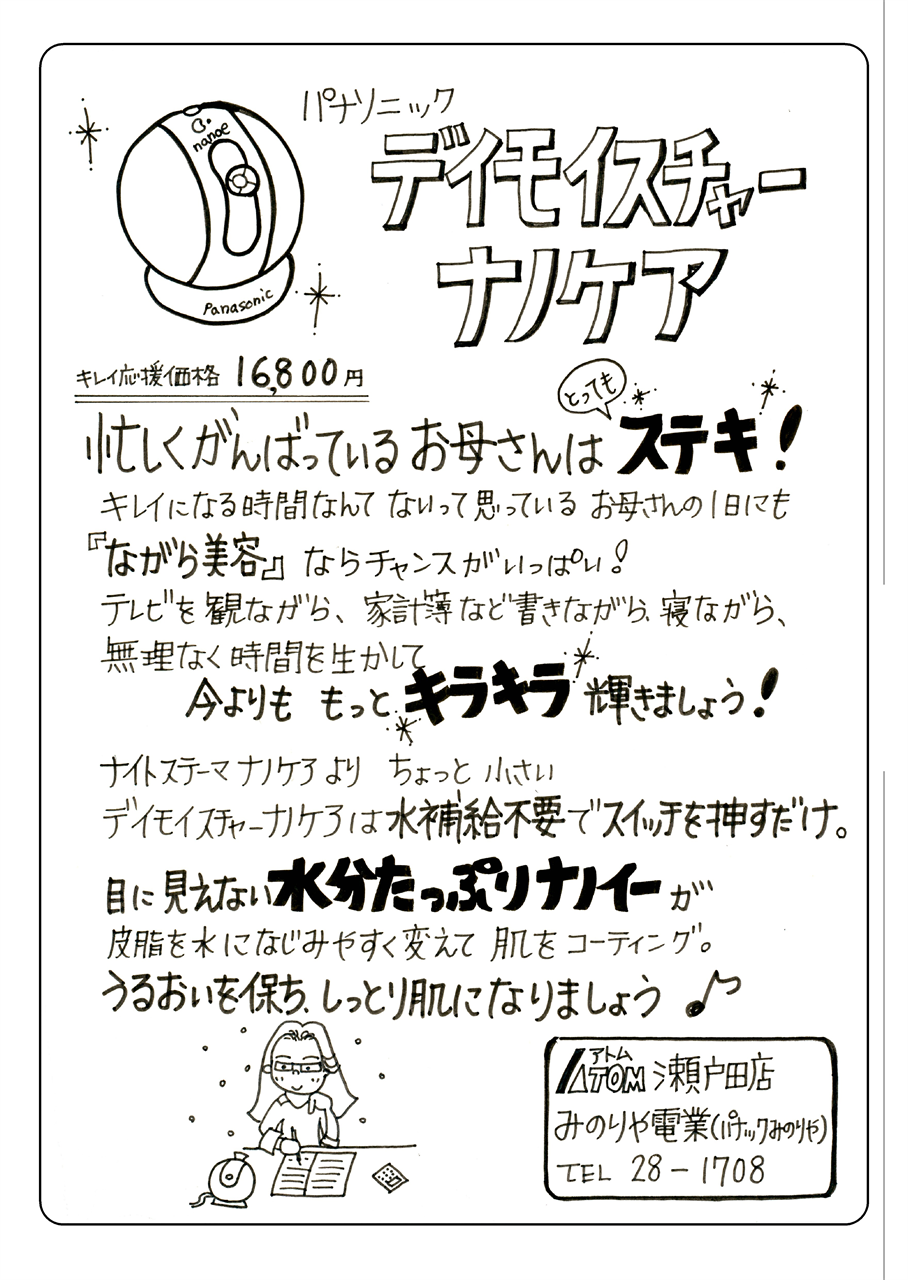 パナソニック
nanoe
デイモイスチャー
ナノケア
Panasonic
キレイ応援価格 16,800円
とっても
忙しくがんばっているお母さんは ステキ!
キレイになる時間なんて ないって思っている お母さんの1日にも
『ながら美容』ならチャンスがいっぱい!
テレビを観ながら、家計簿など書きながら、寝ながら、
無理なく時間を生かして
今よりも もっと キラキラ 輝きましょう!
ナイトスチーマナノケアより ちょっと小さい
デイモイスチャーナノケアは水補給不要でスイッチを押すだけ。
目に見えない水分たっぷりナノイーが
皮脂を水になじみやすく変えて 肌をコーティング。
うるおいを保ち、しっとり肌になりましょう♪
アトム
ATOM 瀬戸田店
みのりや電業(パナックみのりや)
TEL 28-1708